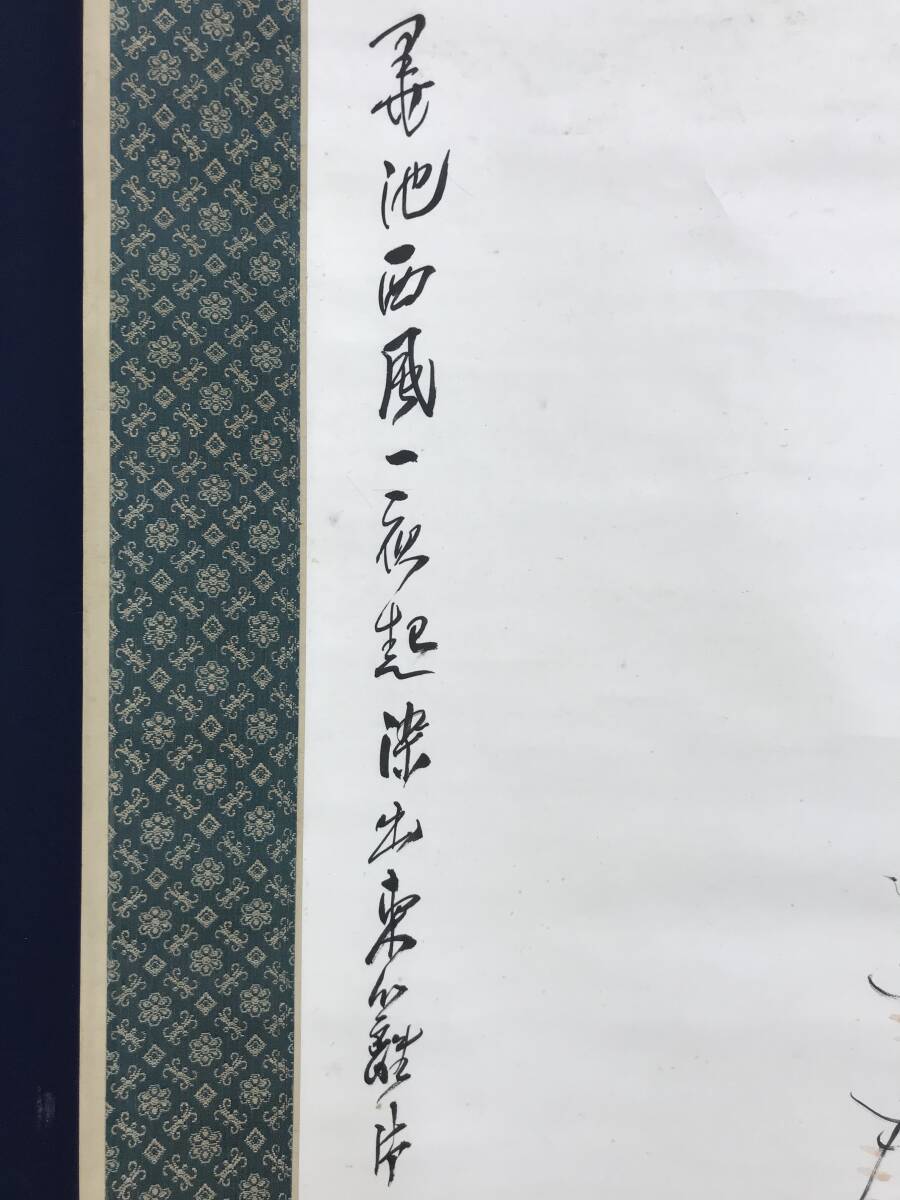 墨池西風一夜起染出東籬片